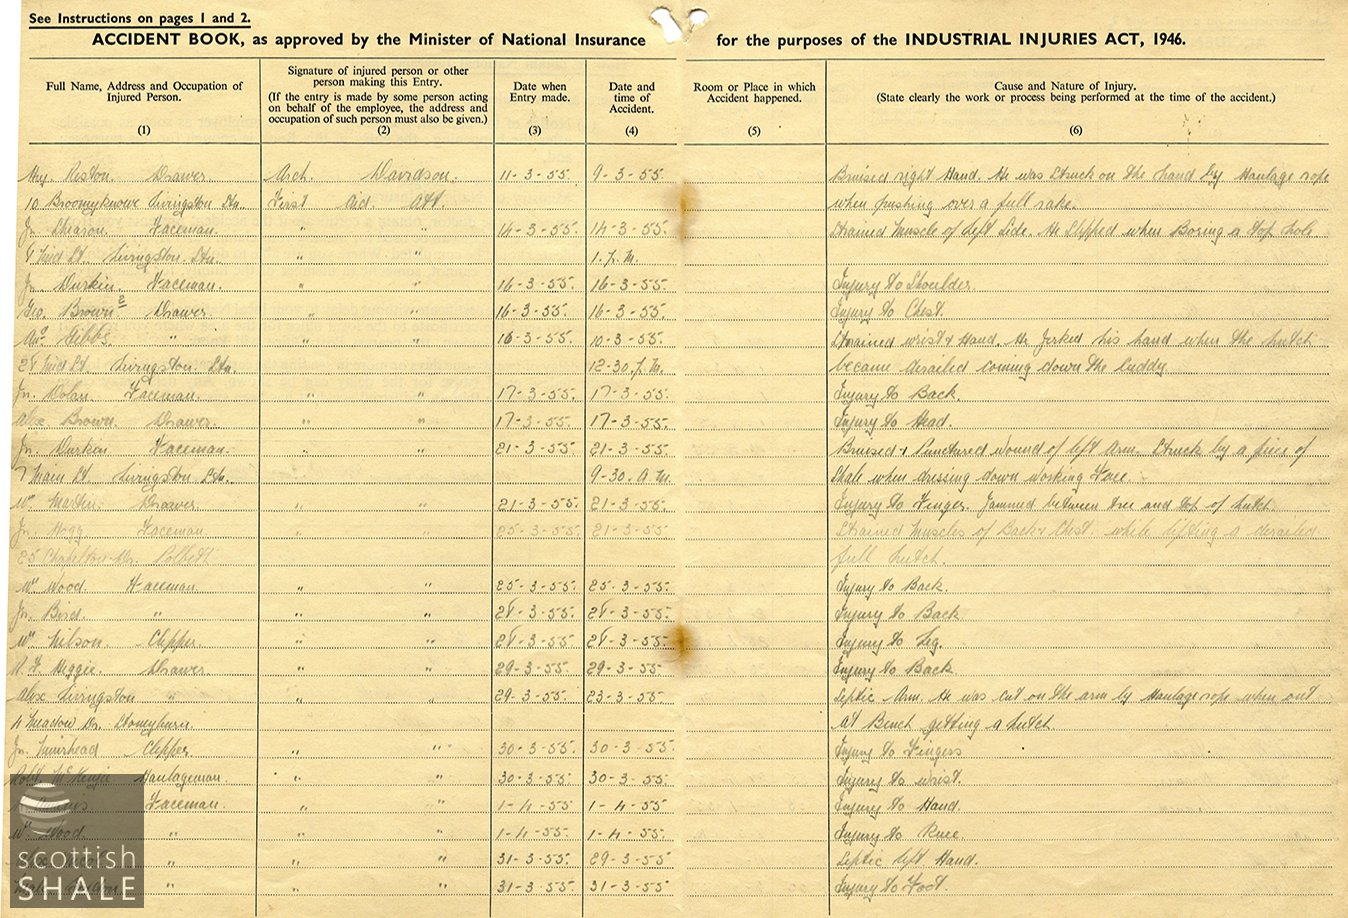 See Instructions on pages 1 and 2.
ACCIDENT BOOK, as approved by the Minister of National Insurance for the purposes of the INDUSTRIAL INJURIES ACT, 1946.
Full Name, Address and Occupation of Injured Person. (1)
Signature of injured person or other person making this Entry. (If the entry is made by some person acting on behalf of the employee, the address and occupation of such person must also be given.) (2)
Date when Entry made. (3)
Date and time of Accident. (4)
Room or Place in which Accident happened. (5)
Cause and Nature of Injury. (State clearly the work or process being performed at the time of the accident.) (6)
Reston. Drawer Arch. Davidson. 11-3-55 9-3-55 Bruised right Hand. He was Struck on the hand by Haulage rope
10 Broomyknowe Livingston Stn. First Aid Att. when pushing over a full rake.
Jn. Shearon. Faceman. " " 14-3-55. 14-3-55. Strained Muscle of Left Side. He Slipped when Boring a Top hole
8 Mid St. Livingston. Stn. " " 1. P.M.
Jn. Durkin. Faceman. " " 16-3-55. 16-3-55. Injury to Shoulder
Geo. Brown 2 Drawer. " " 16-3-55. 16-3-55. Injury to Chest.
Gibbs. " " " 16-3-55. 10-3-55. Strained wrist & Hand. He Jerked his hand when the hutch
28 Mid St. Livingston. Stn. 12-30. P.M. became derailed coming down the Cuddy.
Jn. Dolan Faceman. " " 17-3-55. 17-3-55. Injury to Back.
Alex. Brown. Drawer. " " 17-3-55. 17-3-55. Injury to Head.
Jn. Durkin Faceman. " " 21-3-55. 21-3-55. Bruised & Punctured Wound of left Arm. Struck by a piece of
7 Main St. Livingston Stn. 9-30. A.M. Shale when dressing down working Face.
Wm. Martin. Drawer. " " 21-3-55. 21-3-55. Injury to Finger. Jammed between tree and top of hutch.
Jn. Hogg Faceman " " 25-3-55. 21-3-55 Strained Muscles of Back & Chest. while lifting a derailed
25 Dr. full hutch.
Wm. Wood. Faceman. " " 25-3-55. 25-3-55. Injury to Back.
Jn. Bird. " " " 28-3-55. 28-3-55. Injury to Back
Wm. Wilson. Clipper. " " 28-3-55. 28-3-55. Injury to Leg.
Drawer " " 29-3-55. 29-3-55. Injury to Back.
Alex Livingston " 29-3-55. 23-3-55. Septic Arm. He was cut on the arm by Haulage rope when out
4 Meadow Dr. Stoneyburn. at Bench getting a hutch.
Jn. Muirhead Clipper " " 30-3-55. 30-3-55. Injury to Fingers
Robt. McKenzie Haulageman. " " 30-3-55. 30-3-55. Injury to wrist.
Faceman. " " 1-4-55 1-4-55. Injury to Hand.
Wm. Wood. " " " 1-4-55. 1-4-55. Injury to Knee
" " " 31-3-55. 29-3-55 Septic left Hand.
" " " 31-3-55. 31-3-55. Injury to Foot.
scottish
SHALE